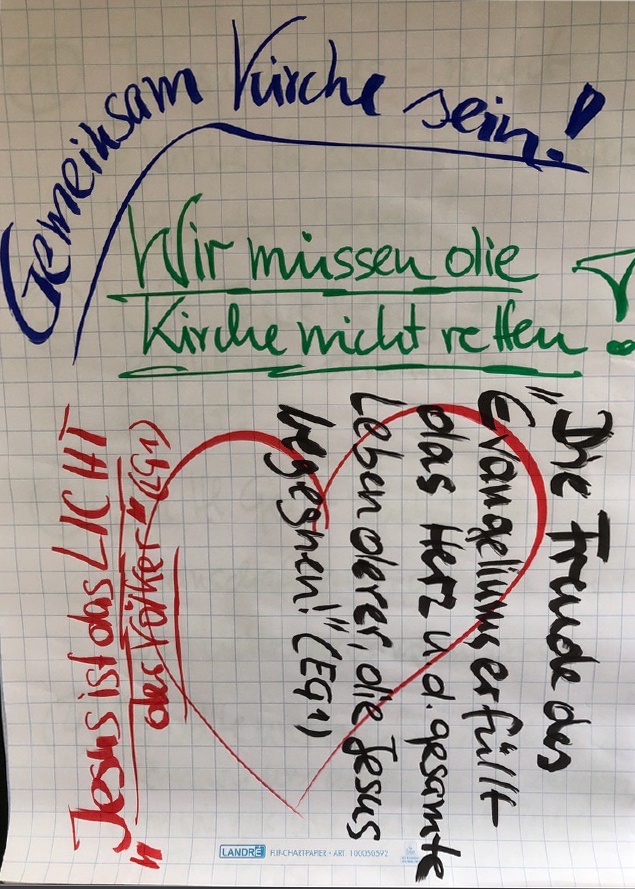 Gemeinsam Kirche sein!
Wir müssen die
Kirche nicht retten!
"Die Freude des
Evangeliums erfüllt
das Herz u.d. gesamte
Leben derer, die Jesus
begegnen!" (EG1)
"Jesus ist das LICHT
der Völker" (LG1)
LANDRÉ FLIPCHARTPAPIER • ART. 100050592